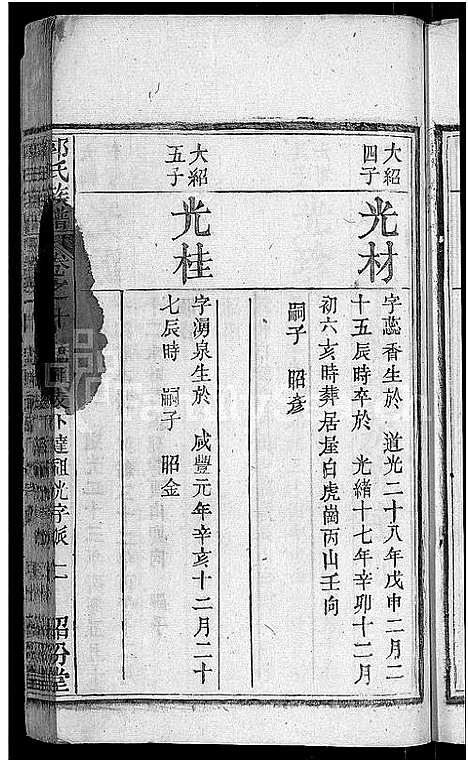 大紹
四子
光材
字蕊香生於 道光二十八年戊申二月二
十五辰時卒於 光緒十七年辛卯十二月
初六亥時葬居屋白虎崗丙山壬向
嗣子 昭彥
大紹
五子
光桂
字湧泉生於 咸豐元年辛亥十二月二十
七辰時 嗣子 昭金
郭氏族譜 卷之十 達祖光字派 二